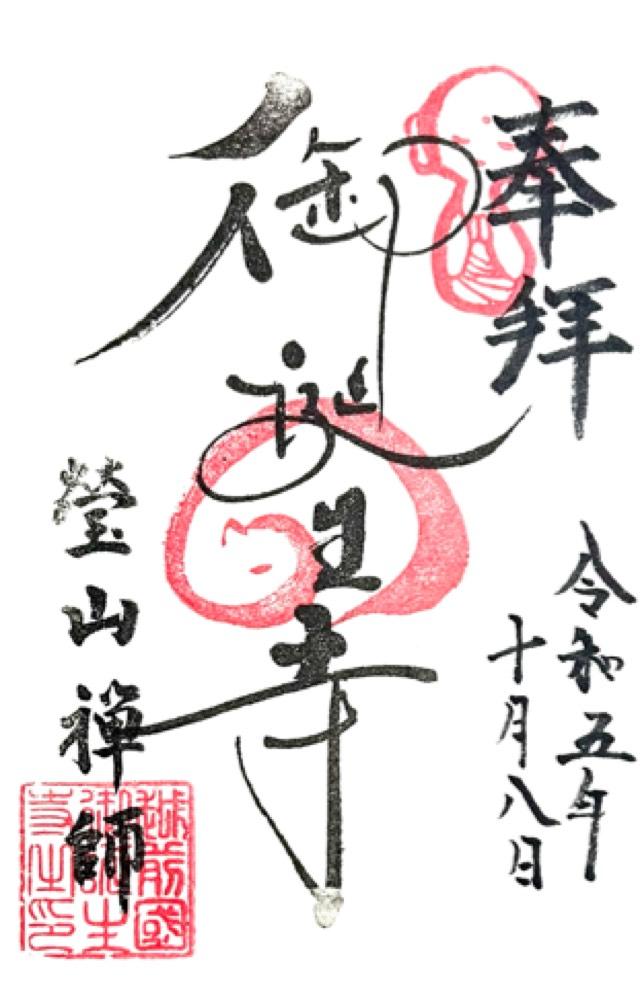 奉拝
令和五年
十月八日
御誕生寺
瑩山禅師
越前國
御誕生
寺之印